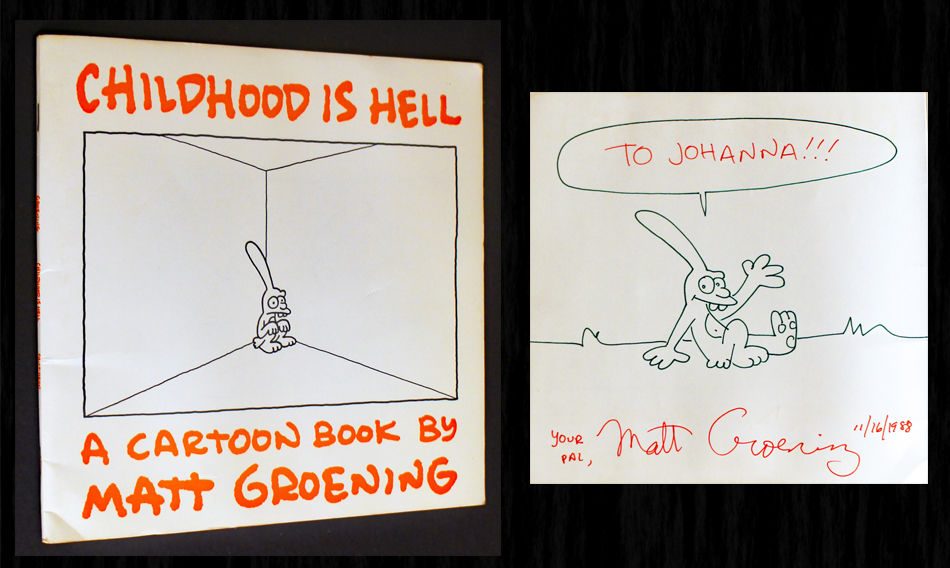 CHILDHOOD IS HELL
A CARTOON BOOK BY
MATT GROENING
TO JOHANNA!!!
YOUR
PAL,
Matt Groening
11/16/1988